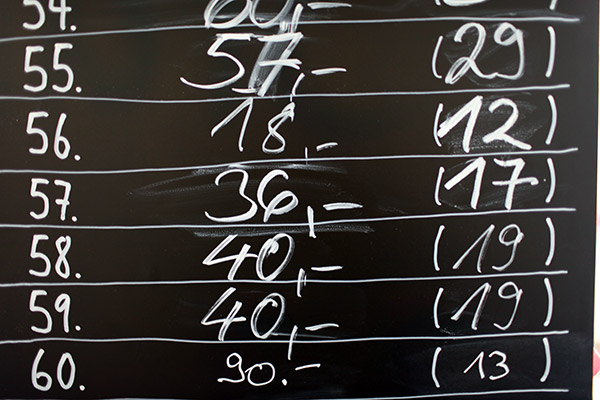 54. 60,-
55. 57,- (29)
56. 18,- (12)
57. 36,- (17)
58. 40,- (19)
59. 40,- (19)
60. 90.- (13)